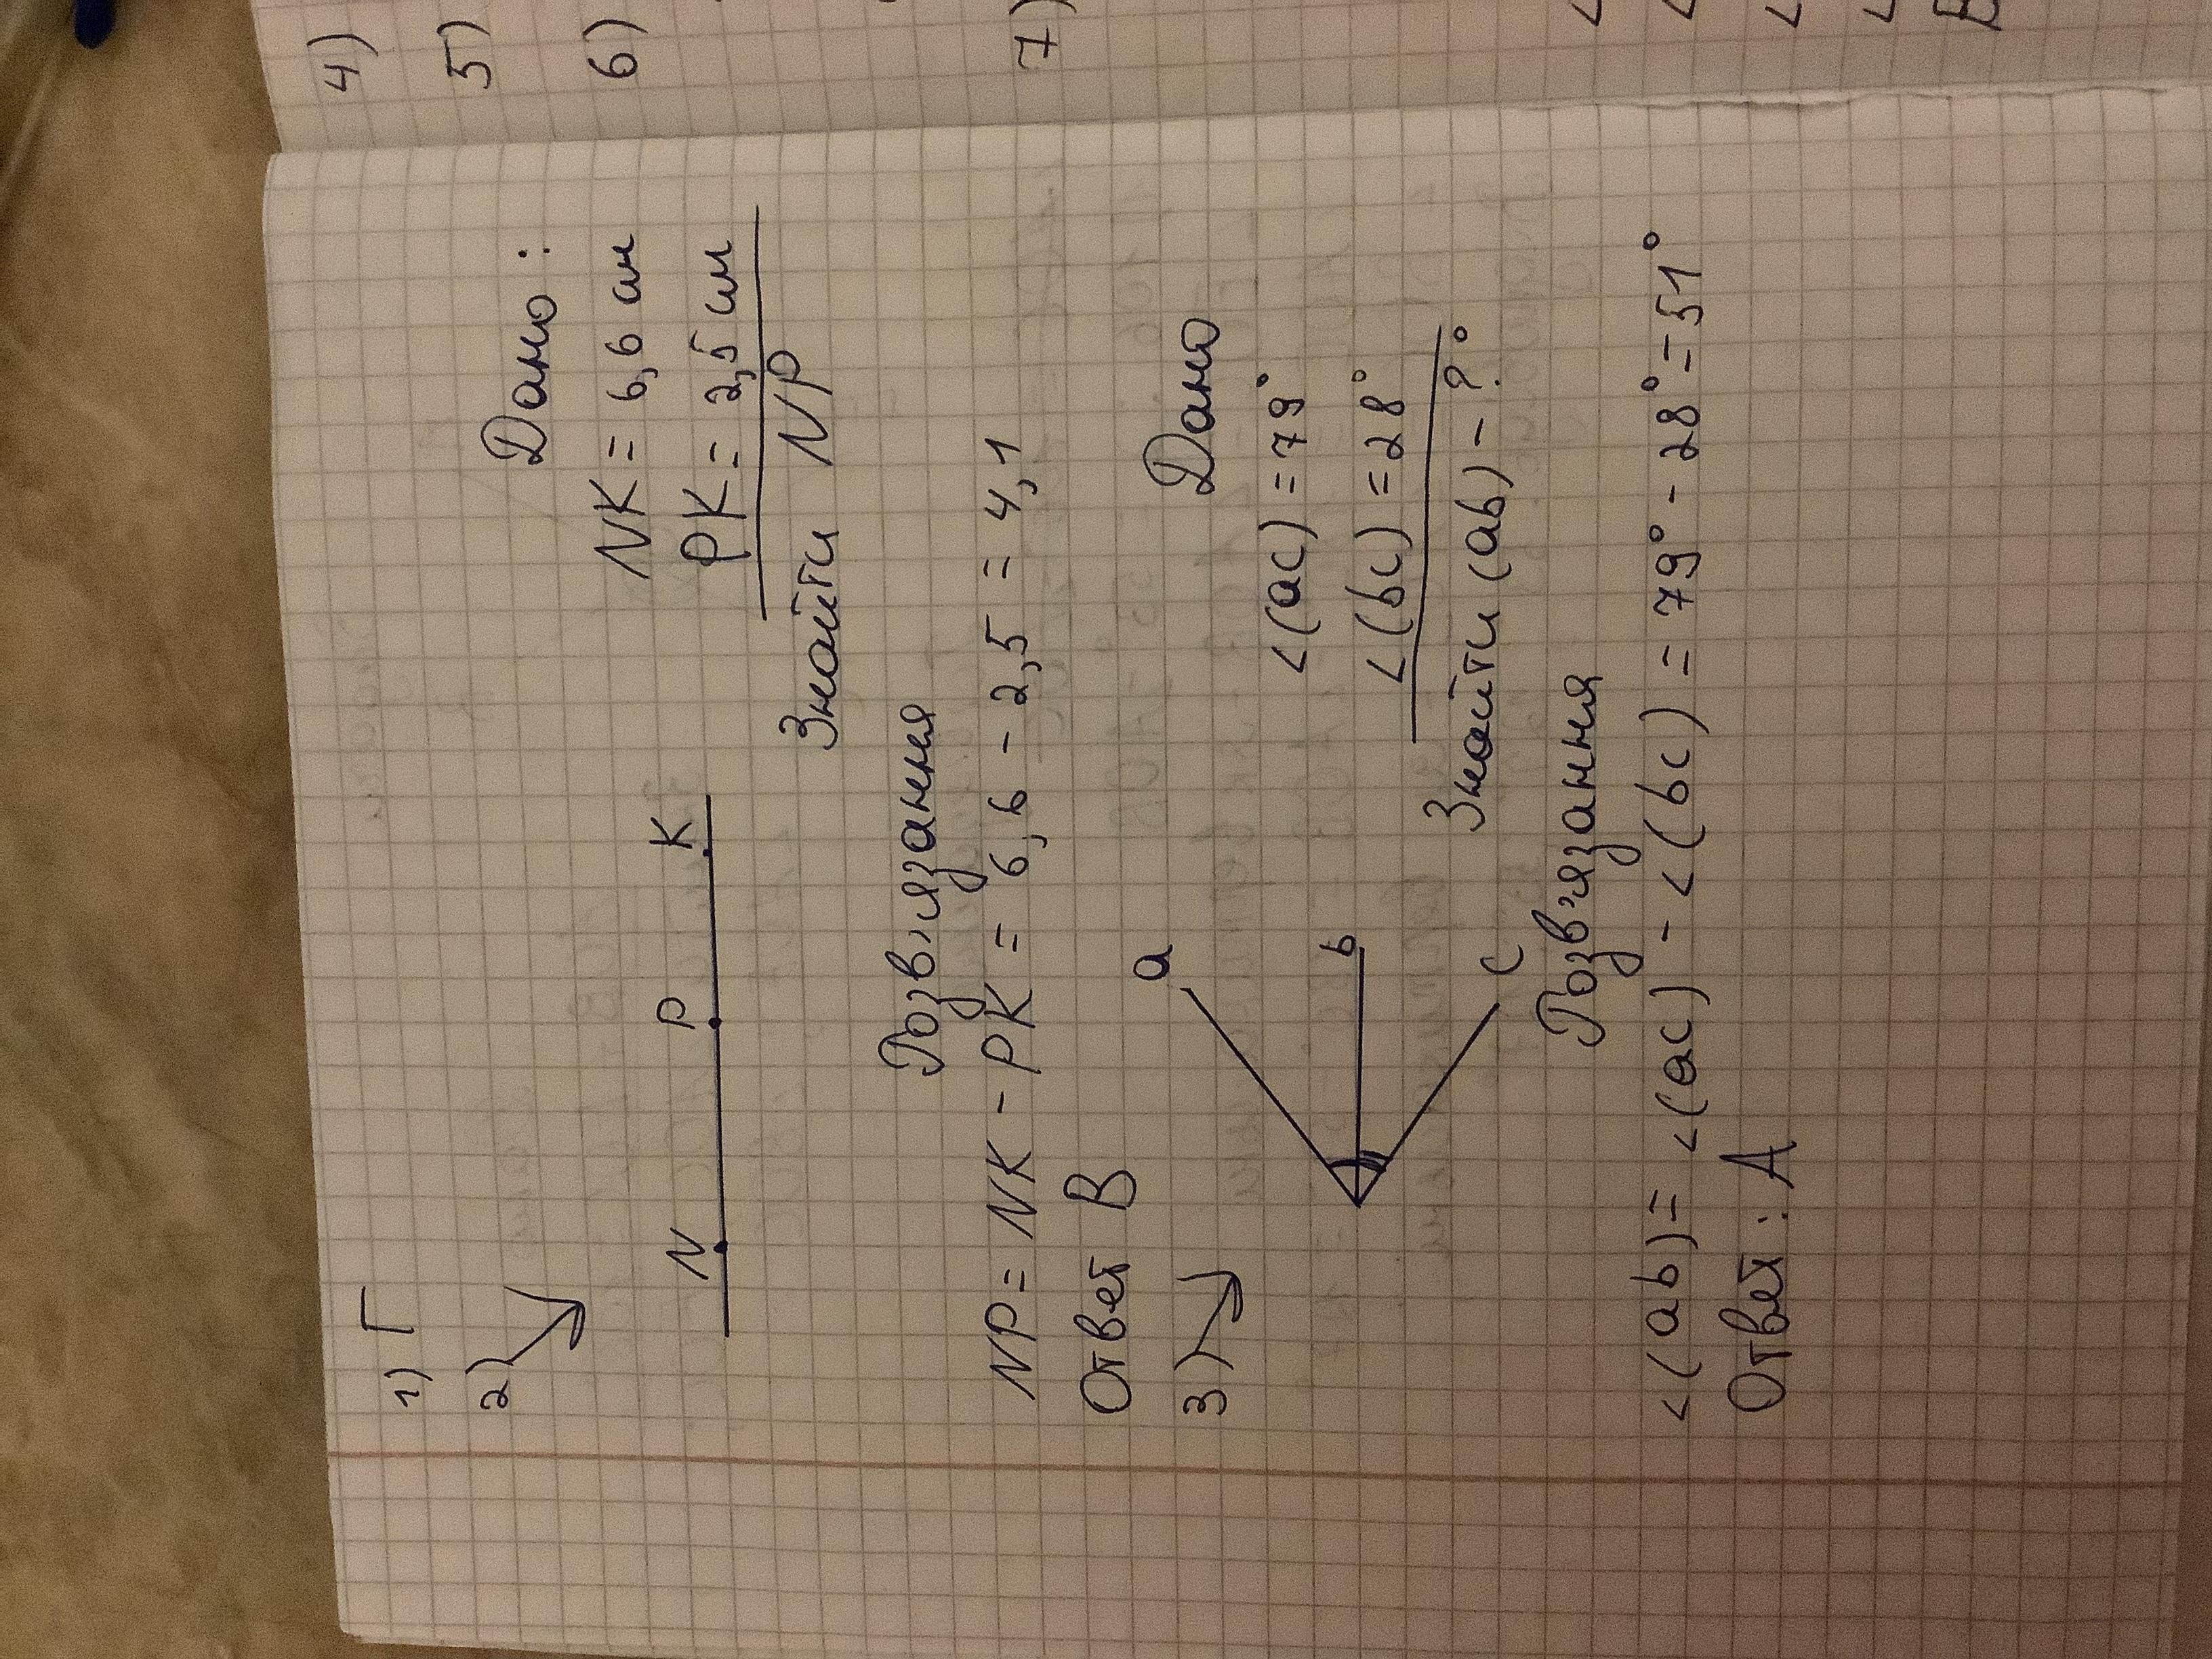 1) Г
2)
Дано:
N P K
NK = 6,6 см
PK = 2,5 см
Знайти NP
Розв'язання
NP = NK - PK = 6,6 - 2,5 = 4,1
Ответ В
3)
Дано
a
<(ac) = 79°
b
<(bc) = 28°
c
Знайти (ab) - ?°
Розв'язання
<(ab) = <(ac) - <(bc) = 79° - 28° = 51°
Ответ: А
4)
5)
6)
7)
<
<
<
<